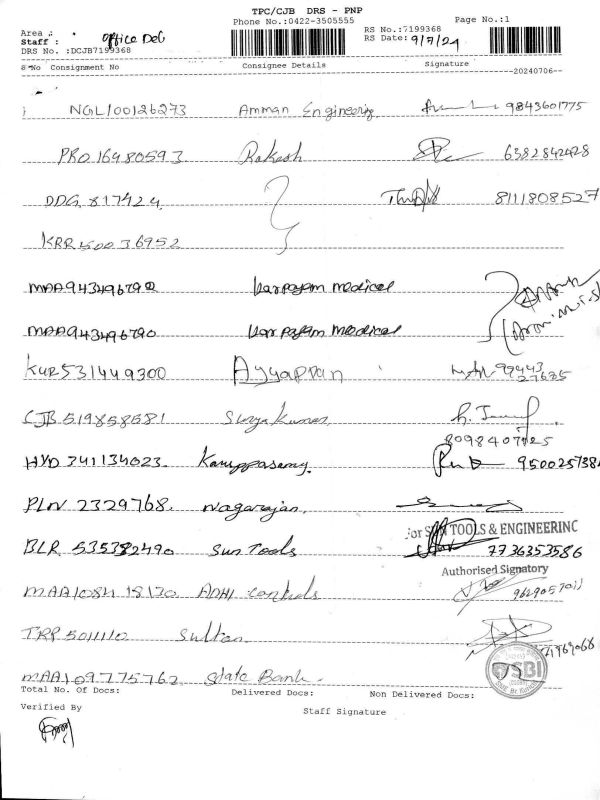 TPC/CJB DRS - PNP
Phone No.:0422-3505555 Page No.:1
Area : RS No.:7199368
Staff : office Del RS Date: 9/7/24
DRS No. :DCJB7199368
S No Consignment No Consignee Details Signature
20240706
NGL100126273 Amman Engineering 9843601775
PRO16980593 Rakesh 6382842428
DDG 817424 8111808527
KRR50036952
MAA943496792 Karpagam medical
MAA943496790 Karpagam Medical
KUR531449300 Ayyappan 99443 27625
CJB 519858581 Surya kumar
8098407725
HYD 341134023. Karuppasamy. 9500257384
PLN 2329768. Nagarajan.
For SUN TOOLS & ENGINEERING
BLR 535382490 Sun Tools 7736353586
Authorised Signatory
MAA1084 18170 ADHI controls 9629057011
TRP 5011110 Sultan
MAA109775762 State Bank.
SBI
Total No. Of Docs: Delivered Docs: Non Delivered Docs:
Verified By Staff Signature